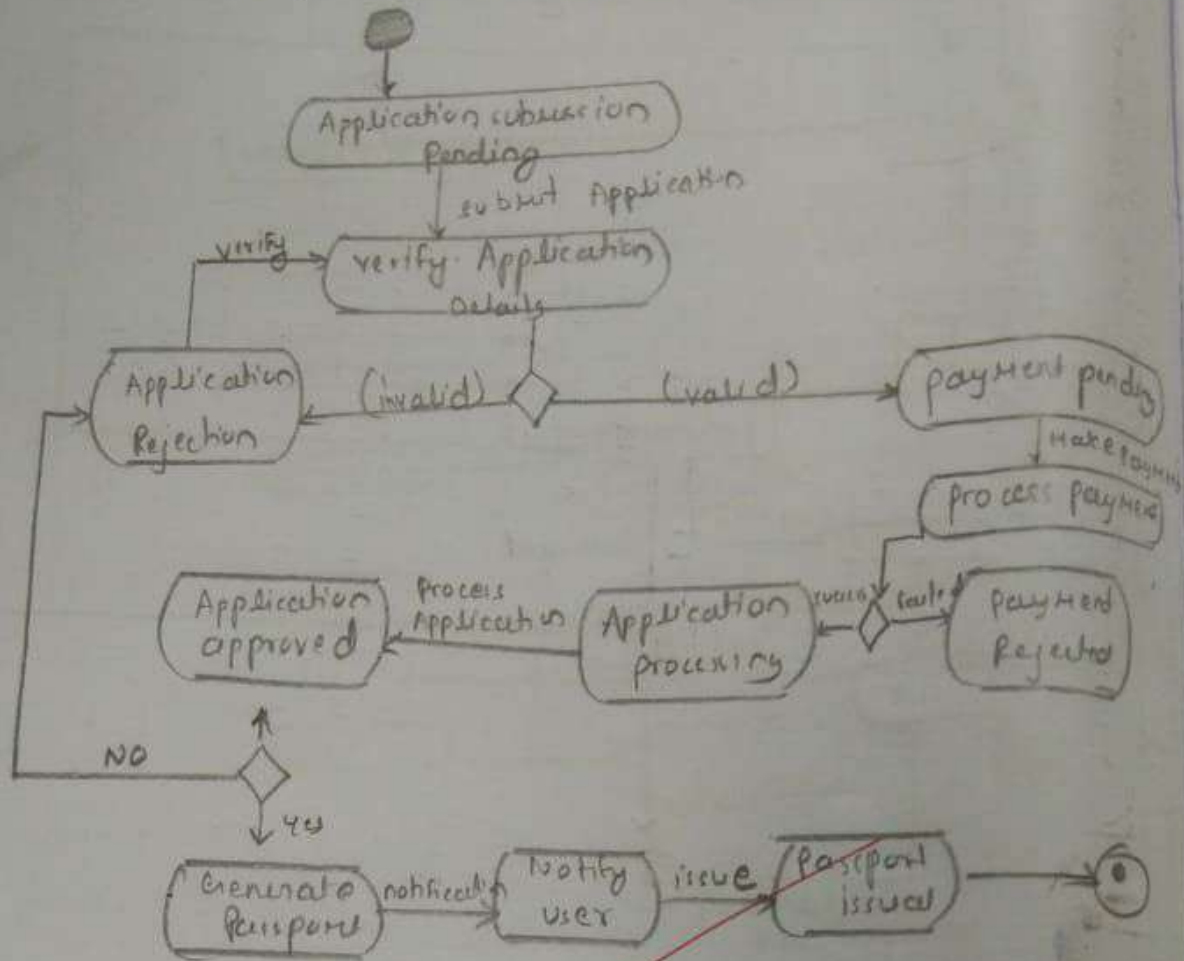 Application submission
Pending
submit Application
verify
verify Application
Details
Application
Rejection
(invalid)
(valid)
payment pending
Make Payment
process payment
Application
approved
Process
Application
Application
processing
success
payment
Rejected
NO
Yes
Generate
Passport
notification
Notify
user
issue
Passport
issued